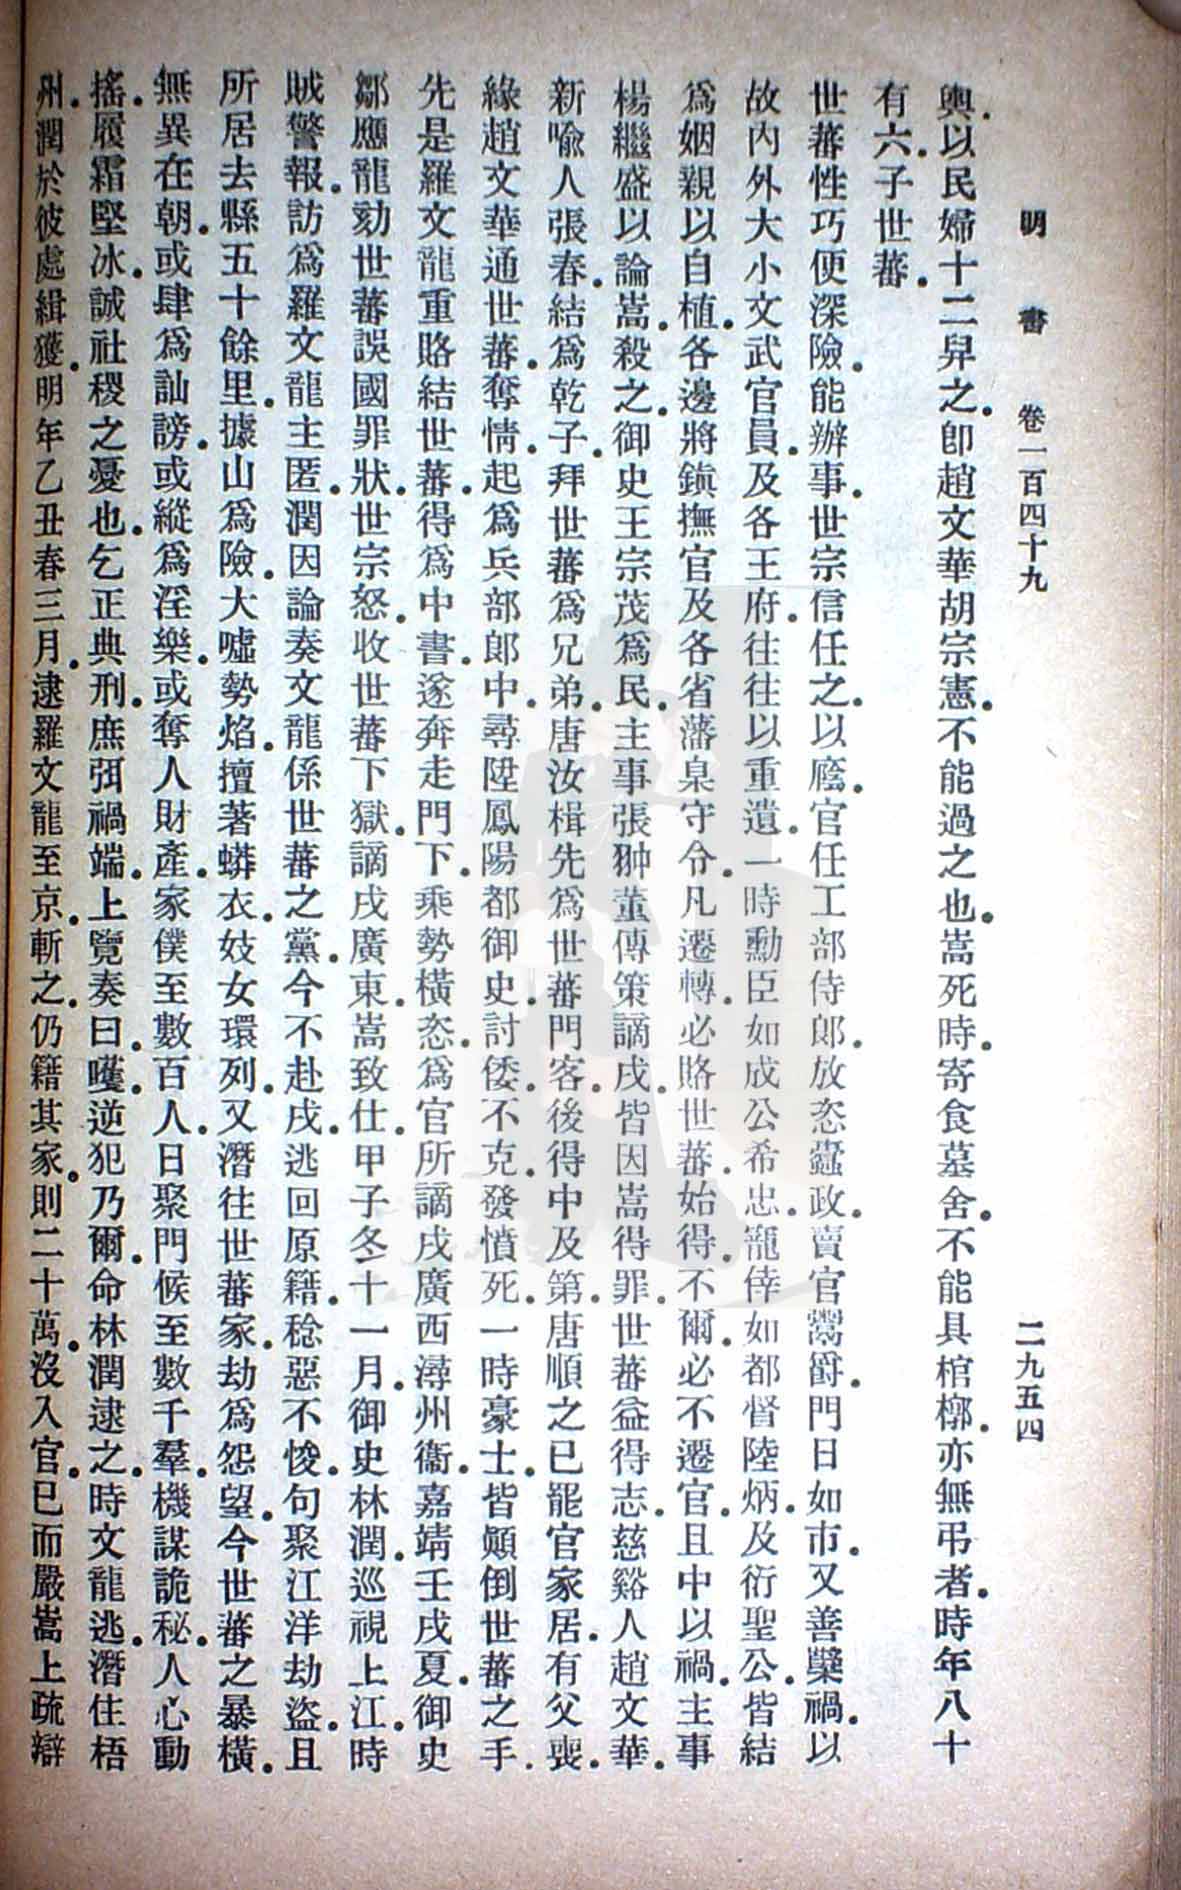 明書 卷一百四十九 二九五四
輿.以民婦十二舁之.卽趙文華胡宗憲.不能過之也.嵩死時.寄食墓舍.不能具棺槨.亦無弔者.時年八十
有六.子世蕃.
世蕃性巧便深險.能辦事.世宗信任之.以廕官任工部侍郞.放恣蠹政.賣官鬻爵.門日如市.又善櫱禍.以
故內外大小文武官員.及各王府.往往以重遺.一時勳臣如成公希忠.寵倖如都督陸炳.及衍聖公.皆結
爲姻親以自植.各邊將鎭撫官及各省藩臬守令.凡遷轉.必賂世蕃.始得.不爾.必不遷官.且中以禍.主事
楊繼盛以論嵩.殺之.御史王宗茂爲民.主事張翀董傳策謫戍.皆因嵩得罪.世蕃益得志.慈谿人趙文華.
新喻人張春.結爲乾子.拜世蕃爲兄弟.唐汝楫先爲世蕃門客.後得中及第.唐順之已罷官家居.有父喪.
緣趙文華通世蕃.奪情.起爲兵部郞中.尋陞鳳陽都御史.討倭.不克.發憤死.一時豪士.皆顚倒世蕃之手.
先是羅文龍重賂結世蕃.得爲中書.遂奔走門下.乘勢橫恣.爲官所謫戍廣西潯州衞.嘉靖壬戌夏.御史
鄒應龍劾世蕃誤國罪狀.世宗怒.收世蕃下獄.謫戍廣東.嵩致仕.甲子冬十一月.御史林潤.巡視上江.時
賊警報.訪爲羅文龍主匿.潤因論奏文龍係世蕃之黨.今不赴戍.逃回原籍.稔惡不悛.句聚江洋劫盜.且
所居去縣五十餘里.據山爲險.大噓勢焰.擅著蟒衣.妓女環列.又潛往世蕃家.劫爲怨望.今世蕃之暴橫.
無異在朝.或肆爲訕謗.或縱爲淫樂.或奪人財產.家僕至數百人.日聚門候至數千羣.機謀詭秘.人心動
搖.履霜堅冰.誠社稷之憂也.乞正典刑.庶弭禍端.上覽奏曰.嚄.逆犯乃爾.命林潤逮之.時文龍逃.潛住梧
州.潤於彼處緝獲.明年乙丑春三月.逮羅文龍至京.斬之.仍籍其家.則二十萬.沒入官.已而嚴嵩上疏辯